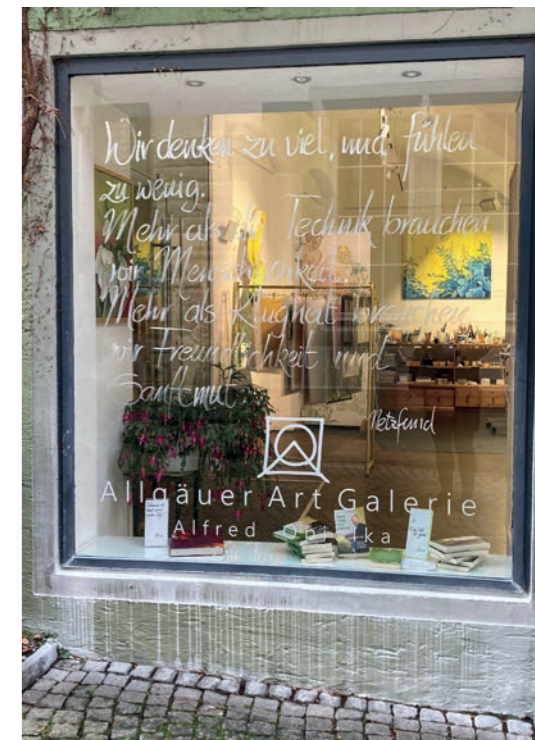 Wir denken zu viel, und fühlen
zu wenig.
Mehr als die Technik brauchen
wir Menschlichkeit.
Mehr als Klugheit brauchen
wir Freundlichkeit und
Sanftmut
Netzfund
Allgäuer Art Galerie
Alfred